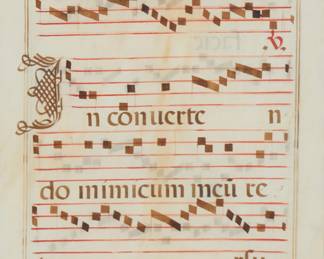 ℣.
In conuerte n
do inimicum meū re